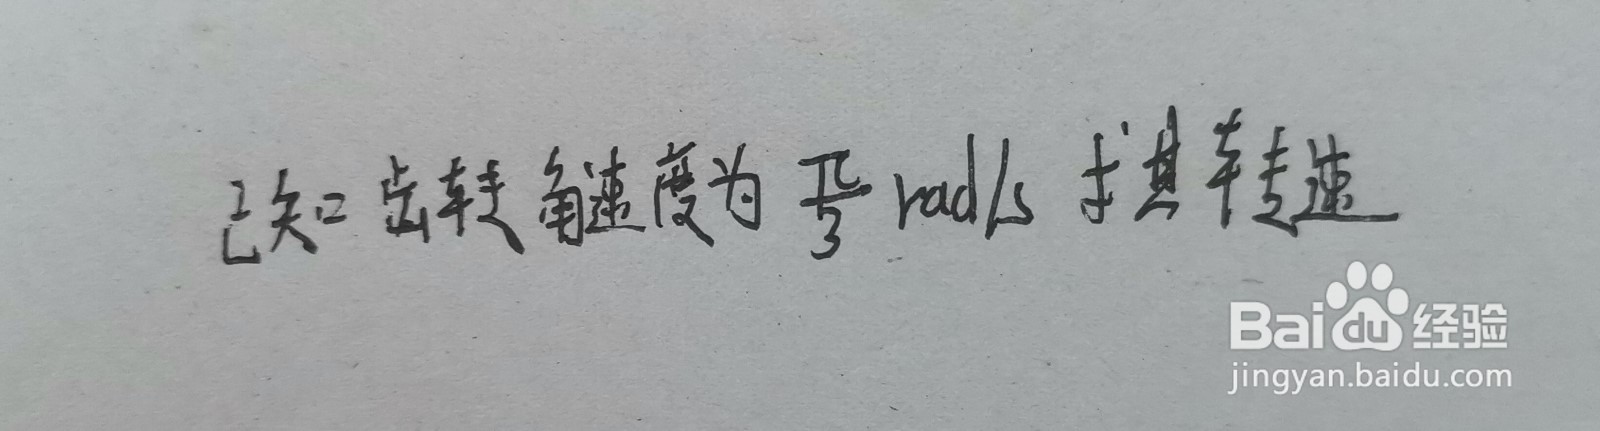 已知齿转角速度为π/3 rad/s 求其转速
Bai du 经验
jingyan.baidu.com